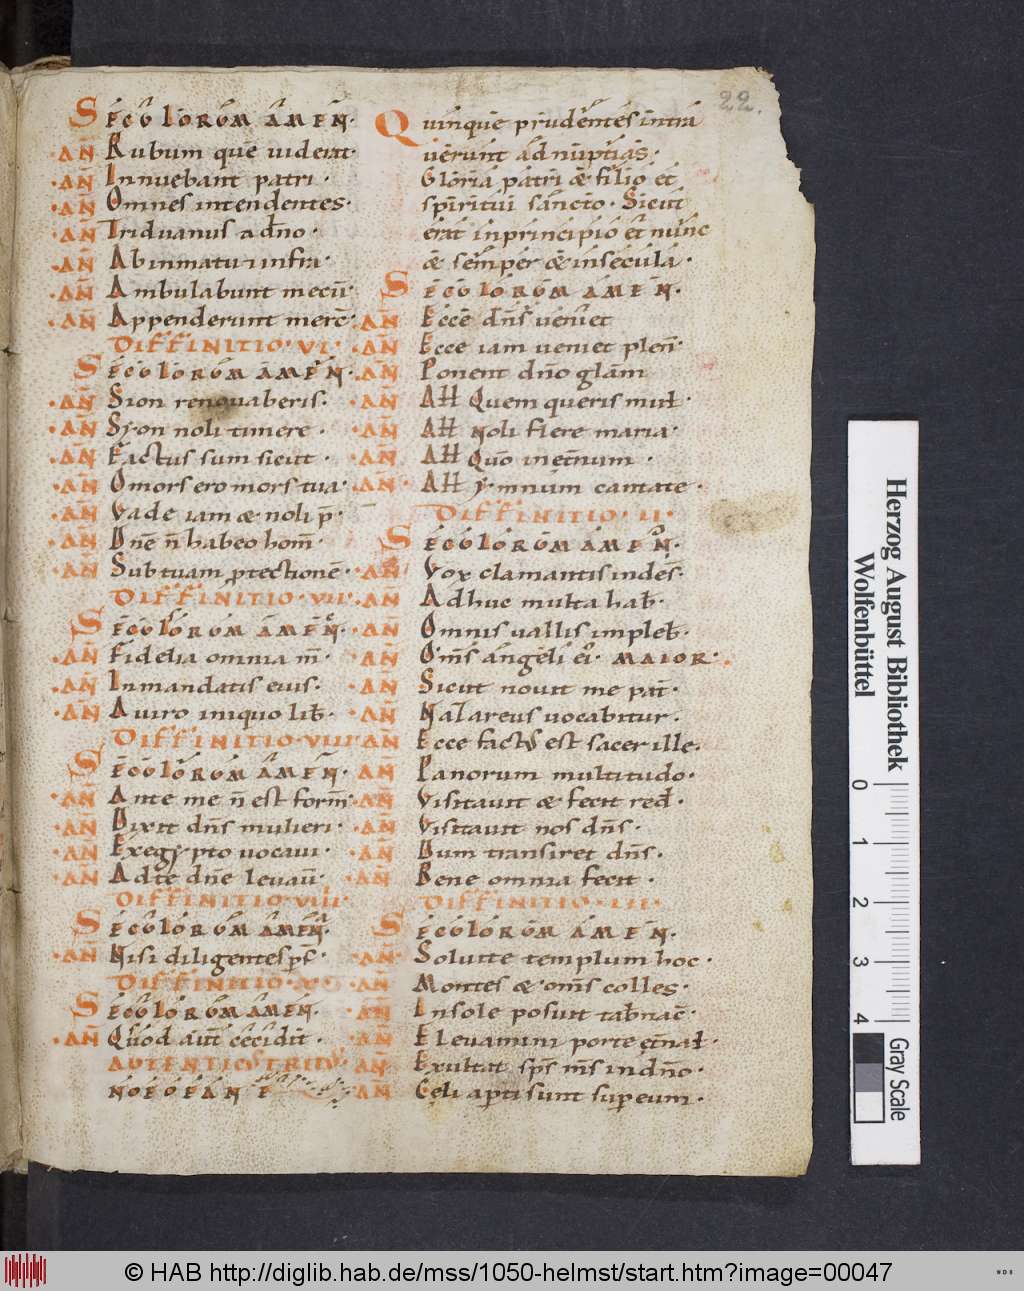 22.
SECULORUM AMEN.
AN Rubum quē uiderat.
AN Innuebant patri.
AN Omnes intendentes.
AN Triduanus a dño.
AN Abinmatu infra.
AN Ambulabunt mecū.
AN Appenderunt mercē.
DIFFINITIO. VI.
SECULORUM AMEN.
AN Sion renouaberis.
AN Syon noli timere.
AN Factus sum sicut.
AN Omors ero mors tua.
AN Vade iam & noli p̄.
AN Dñe ñ habeo hom̄.
AN Sub tuam protectionē.
DIFFINITIO. VII.
SECULORUM AMEN.
AN Fidelia omnia m̄.
AN Inmandatis eius.
AN A uiro iniquo lib.
DIFFINITIO. VIII.
SECULORUM AMEN.
AN Ante me ñ est form̄.
AN Dixit dñs mulieri.
AN Exegypto uocaui.
AN Adte dñe leuaū.
DIFFINITIO VIIII.
SECULORUM AMEN.
AN Nisi diligentes
DIFFINITIO. X.
SECULORUM AMEN.
AN Quod aut cecidit.
AUTENTICUS TRITUS.
NOEOEANE
Quinque prudentes intra
uerunt ad nuptias.
Gloria patri & filio et
spiritui sancto. Sicut
erat inprincipio et nunc
& semper & insecula.
SECULORUM AMEN.
AN Ecce dñs ueniet
AN Ecce iam ueniet plen̄.
AN Ponent dño glām
AN Aƚƚ Quem queris mul.
AN Aƚƚ Noli flere maria.
AN Aƚƚ Quō inet̄num.
AN Aƚƚ Ymnum cantate.
DIFFINITIO. II.
SECULORUM AMEN.
AN Vox clamantis indes̄.
AN Adhuc multa hab.
AN Omnis uallis impleb.
AN Om̄s angeli ei. MAIOR.
AN Sicut nouit me pat̄.
AN Nazareus uocabitur.
AN Ecce factus est sacer ille.
AN Panorum multitudo.
AN Visitauit & fecit red.
AN Visitauit nos dñs.
AN Dum transiret dñs.
AN Bene omnia fecit.
DIFFINITIO. III.
SECULORUM AMEN.
AN Soluite templum hoc.
AN Montes & om̄s colles.
AN Insole posuit tabnac̄.
AN Eleuamini porte et̄nal.
AN Exultat sp̄s m̄s indño.
AN Celi aperti sunt super eum.
Herzog August Bibliothek
Wolfenbüttel
0 1 2 3 4
Gray Scale
© HAB http://diglib.hab.de/mss/1050-helmst/start.htm?image=00047